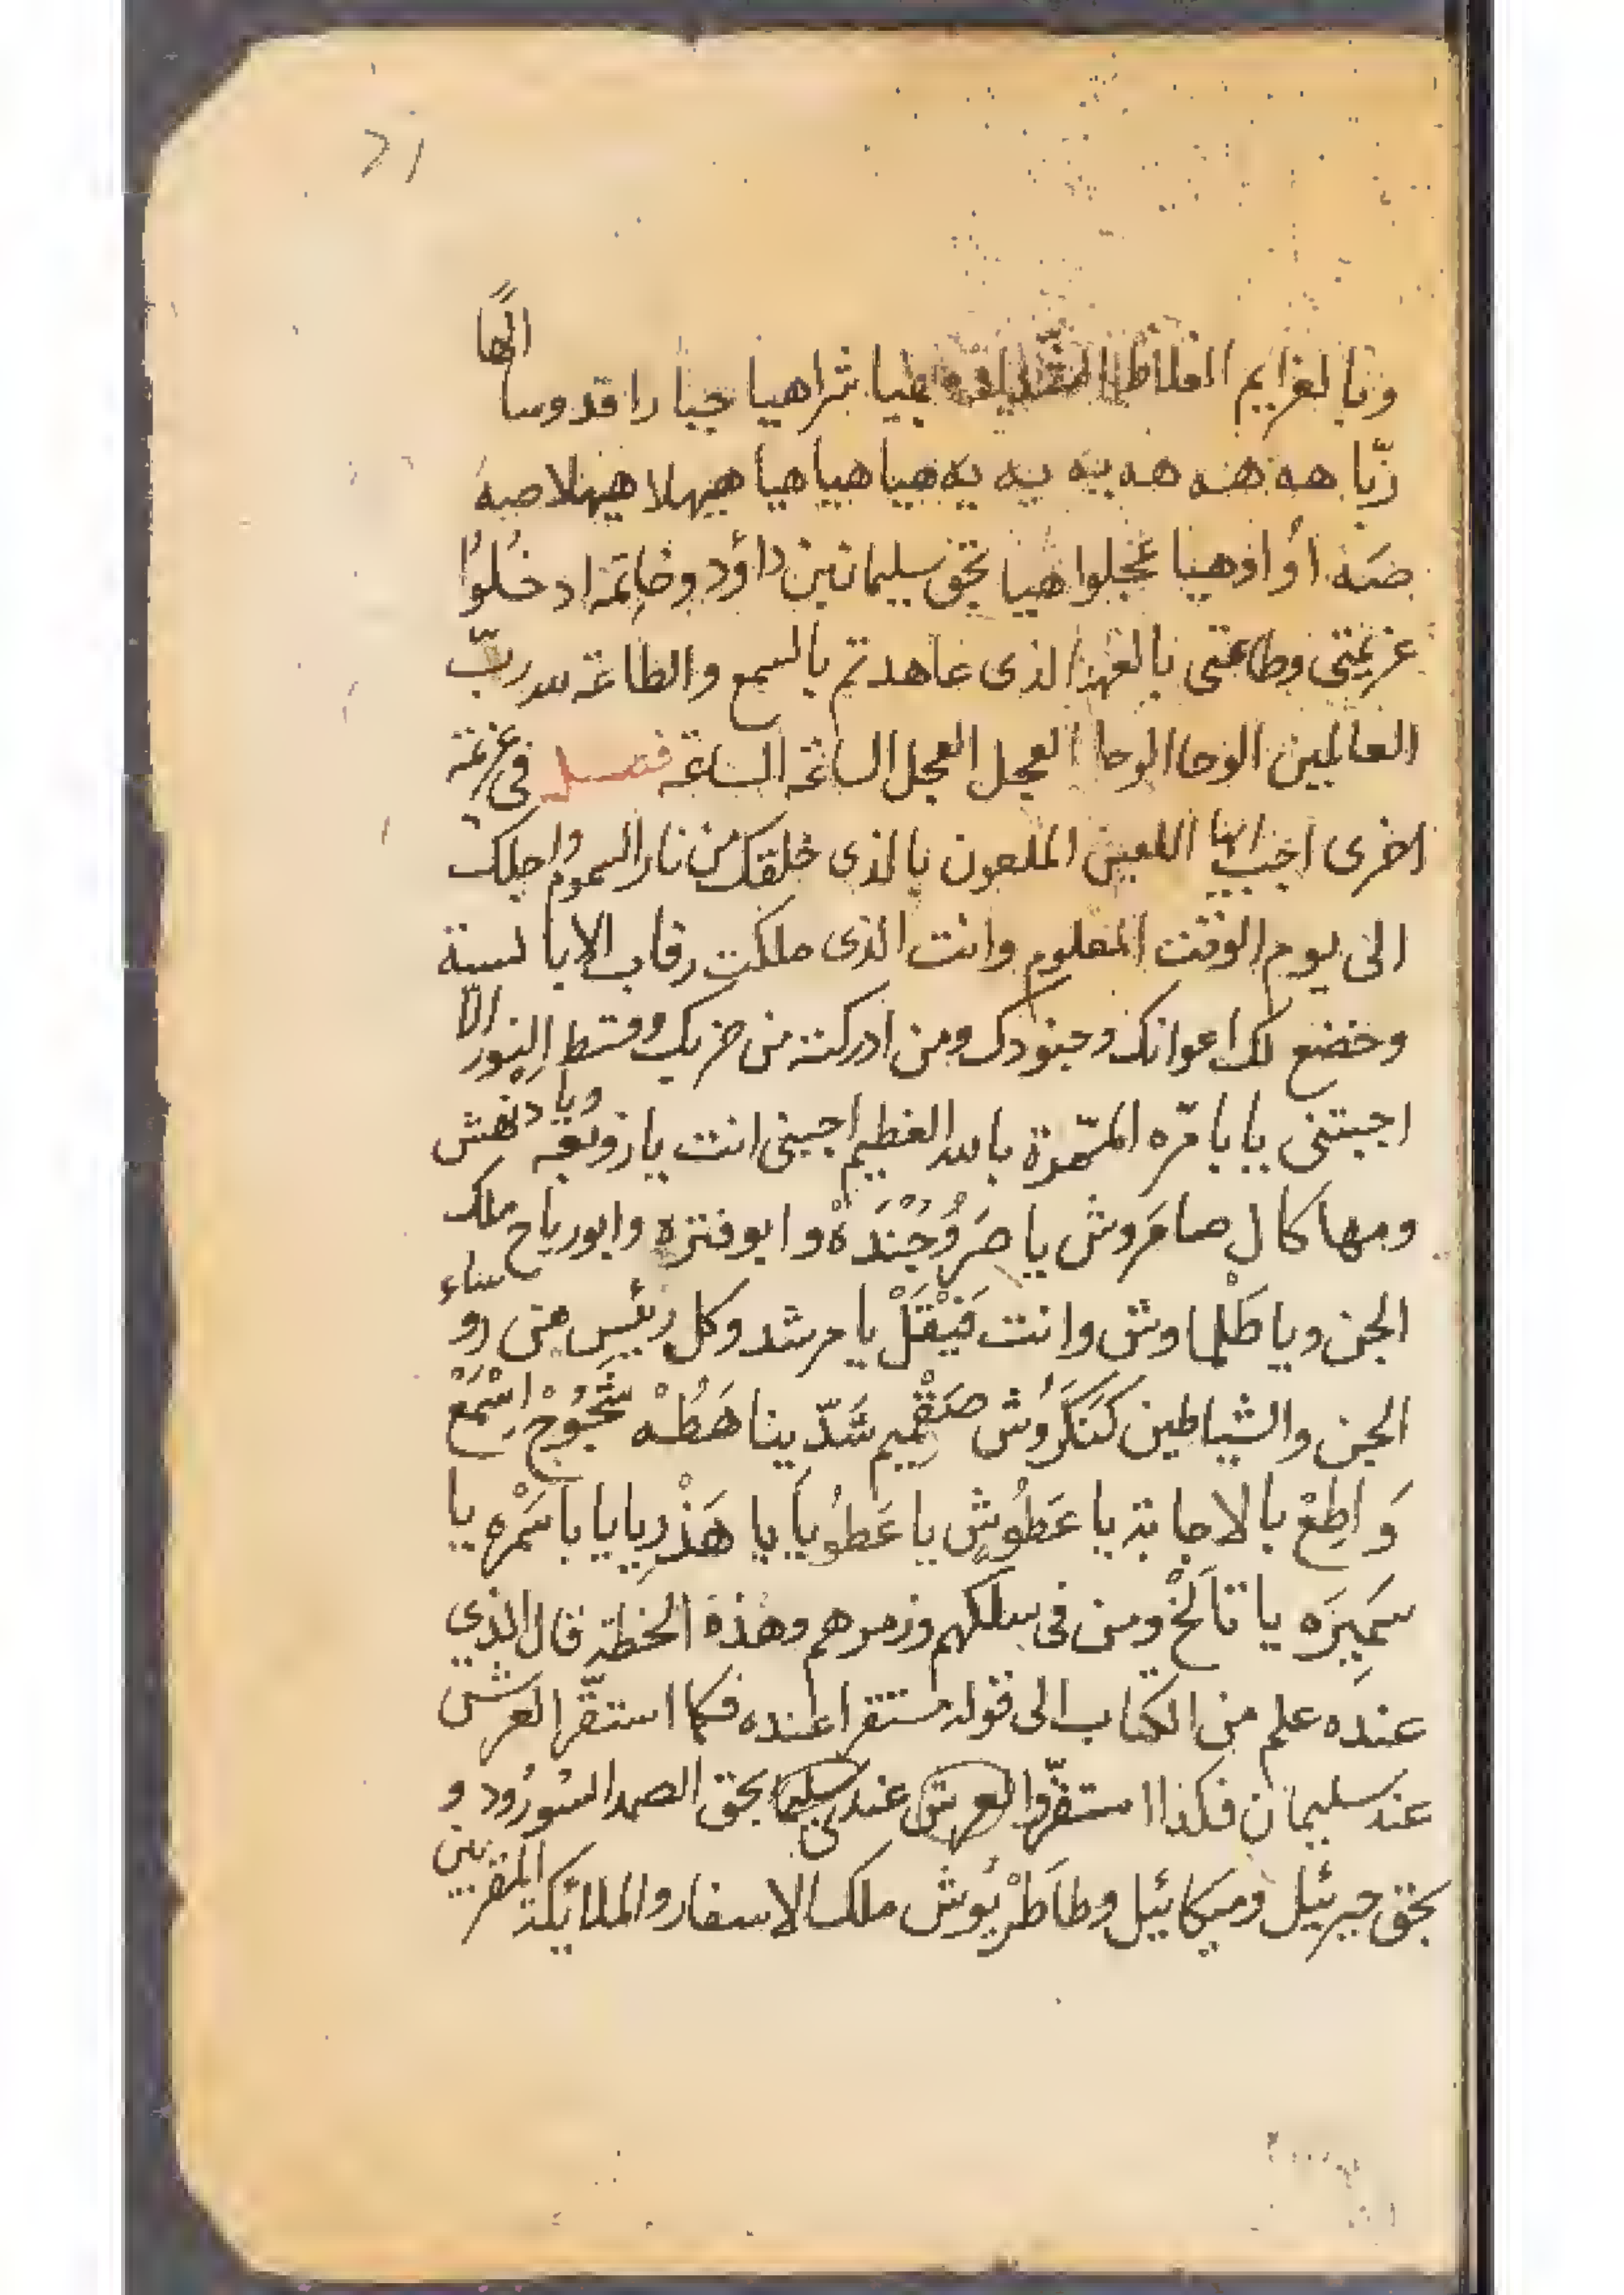 وبالعزايم الغلاظ الشديده يهيا شراهيا جبارا قدوسا الهًا
ربّا هه هه هه يه يه يه هيا هيا هيا هيهلا هيهلا صبه
صبَه أو اوهيا عجلوا هيا بحق سليمان بن داؤد وخاتمه ادخُلوُا
عزيمتى وطاعتى بالعهد الذى عاهدتم بالسمع والطاعة لله ربّ
العالمين الوحا الوحا العجل العجل الساعة الساعه فصل فى عزيمة
اخرى اجب ايها اللعين الملعون بالذى خلقك من نار السموم واجلك
الى يوم الوقت المعلوم وانت الذى ملكت رقاب الابالسة
وخضع لك اعوانك وجنودك ومن ادركته من حزبك الا
اجبتنى يا با مرّه بالله العظيم اجبنى انت يا زوبعه ويا دنهش
ومهاكال صامَروش يا وابو فنزه وابو رياح ملك
الجن ويا طَلْماوش وانت فَيْقَلْ يا مرشد وكل رئيس من روساء
الجن والشياطين كَنَكَرَوُش هَطُطْه اِسْمَعْ
وَاطِعْ بالاجابة يا عَطوُشٍ يا عَطوُيا يا هَذْرِيا يا باسَمْرِه يا
سَمِيرَه يا ومن فى سلكهم وزمرهم وهذه الخطة قال الذي
عنده علم من الكتاب الى قوله مستقرا عنده فكما استقّر العرش
عند سليمان فكذا استقرّوا العرش عند سليمان بحق الصمد و
بحق جبرئيل وميكائيل ملك الاسفار والملائكة المقربين